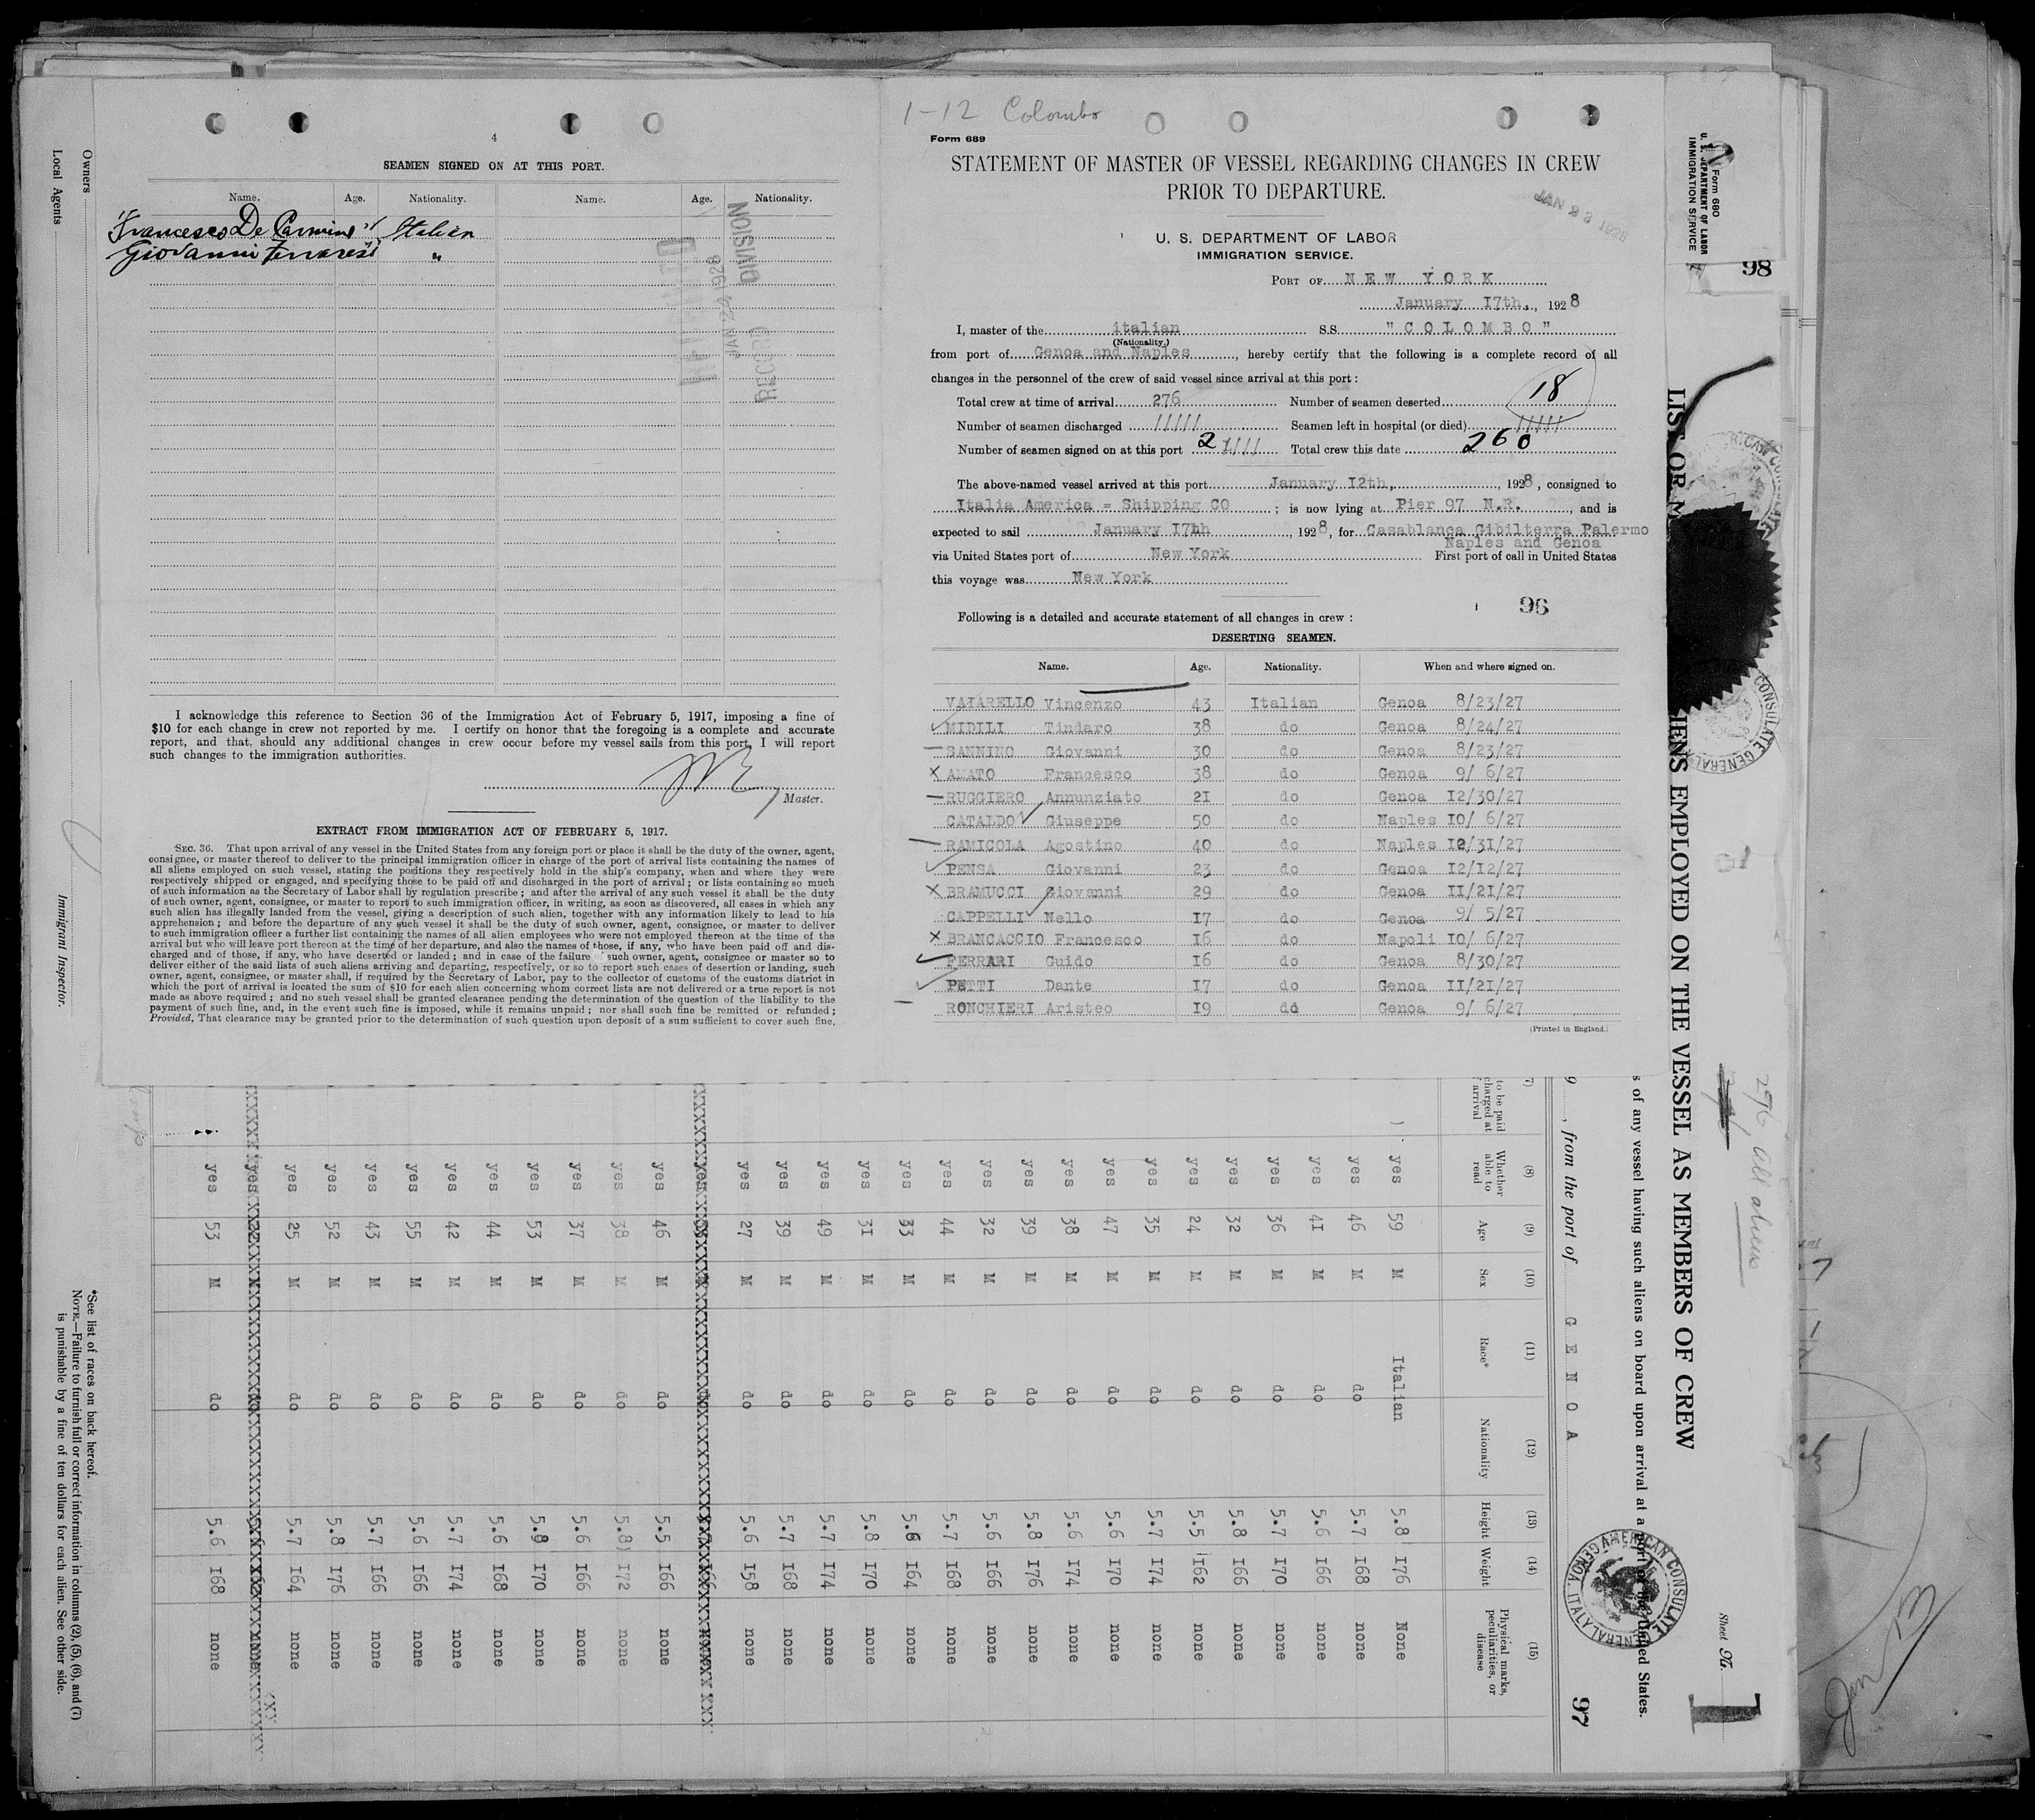 Owners
Local Agents
Immigrant Inspector.
4
SEAMEN SIGNED ON AT THIS PORT.
Name. Age. Nationality. Name. Age. Nationality.
Francesco De Carmine Italian
Giovanni "
DIVISION
JAN 24 1928
RECORD
I acknowledge this reference to Section 36 of the Immigration Act of February 5, 1917, imposing a fine of
$10 for each change in crew not reported by me. I certify on honor that the foregoing is a complete and accurate
report, and that, should any additional changes in crew occur before my vessel sails from this port, I will report
such changes to the immigration authorities.
Master.
EXTRACT FROM IMMIGRATION ACT OF FEBRUARY 5, 1917.
SEC. 36. That upon arrival of any vessel in the United States from any foreign port or place it shall be the duty of the owner, agent,
consignee, or master thereof to deliver to the principal immigration officer in charge of the port of arrival lists containing the names of
all aliens employed on such vessel, stating the positions they respectively hold in the ship's company, when and where they were
respectively shipped or engaged, and specifying those to be paid off and discharged in the port of arrival; or lists containing so much
of such information as the Secretary of Labor shall by regulation prescribe; and after the arrival of any such vessel it shall be the duty
of such owner, agent, consignee, or master to report to such immigration officer, in writing, as soon as discovered, all cases in which any
such alien has illegally landed from the vessel, giving a description of such alien, together with any information likely to lead to his
apprehension; and before the departure of any such vessel it shall be the duty of such owner, agent, consignee, or master to deliver
to such immigration officer a further list containing the names of all alien employees who were not employed thereon at the time of the
arrival but who will leave port thereon at the time of her departure, and also the names of those, if any, who have been paid off and dis-
charged and of those, if any, who have deserted or landed; and in case of the failure of such owner, agent, consignee or master so to
deliver either of the said lists of such aliens arriving and departing, respectively, or so to report such cases of desertion or landing, such
owner, agent, consignee, or master, shall, if required by the Secretary of Labor, pay to the collector of customs of the customs district in
which the port of arrival is located the sum of $10 for each alien concerning whom correct lists are not delivered or a true report is not
made as above required; and no such vessel shall be granted clearance pending the determination of the question of the liability to the
payment of such fine, and, in the event such fine is imposed, while it remains unpaid; nor shall such fine be remitted or refunded;
Provided, That clearance may be granted prior to the determination of such question upon deposit of a sum sufficient to cover such fine.
1-12 Colombo
Form 689
STATEMENT OF MASTER OF VESSEL REGARDING CHANGES IN CREW
PRIOR TO DEPARTURE.
U. S. DEPARTMENT OF LABOR
IMMIGRATION SERVICE.
PORT OF NEW YORK
January 17th., 1928
I, master of the italian S.S. "COLOMBO"
(Nationality.)
from port of Genoa and Naples, hereby certify that the following is a complete record of all
changes in the personnel of the crew of said vessel since arrival at this port:
Total crew at time of arrival 276 Number of seamen deserted 18
Number of seamen discharged ///// Seamen left in hospital (or died) /////
Number of seamen signed on at this port 2//// Total crew this date 260
The above-named vessel arrived at this port January 12th, 1928, consigned to
Italia America = Shipping CO; is now lying at Pier 97 N.R., and is
expected to sail January 17th, 1928, for Casablanca Gibilterra Palermo
Naples and Genoa
via United States port of New York First port of call in United States
this voyage was New York
96
Following is a detailed and accurate statement of all changes in crew:
DESERTING SEAMEN.
Name. Age. Nationality. When and where signed on.
VAIARELLO Vincenzo 43 Italian Genoa 8/23/27
MIDILI Tindaro 38 do Genoa 8/24/27
SANNINO Giovanni 30 do Genoa 8/23/27
AMATO Francesco 38 do Genoa 9/ 6/27
RUGGIERO Annunziato 21 do Genoa 12/30/27
CATALDO Giuseppe 50 do Naples 10/ 6/27
RAMICOLA Agostino 40 do Naples 12/31/27
PENSA Giovanni 23 do Genoa 12/12/27
BRAMUCCI Giovanni 29 do Genoa 11/21/27
CAPPELLI Nello 17 do Genoa 9/ 5/27
BRANCACCIO Francesco 16 do Napoli 10/ 6/27
FERRARI Guido 16 do Genoa 8/30/27
PETTI Dante 17 do Genoa 11/21/27
RONCHIERI Aristeo 19 do Genoa 9/ 6/27
(Printed in England.)
Form 680
U. S. DEPARTMENT OF LABOR
IMMIGRATION SERVICE
98
EMPLOYED ON THE VESSEL AS MEMBERS OF CREW
276 all aliens
Sheet No. 1
of any vessel having such aliens on board upon arrival at a port of the United States.
9 , from the port of GENOA
AMERICAN CONSULATE GENERAL
GENOA, ITALY
97
(7) to be paid charged at arrival
(8) Whether able to read
(9) Age
(10) Sex
(11) Race*
(12) Nationality
(13) Height
(14) Weight
(15) Physical marks, peculiarities, or disease
yes 59 M Italian 5.8 176 None
yes 46 M do 5.7 168 none
yes 41 M do 5.6 166 none
yes 36 M do 5.7 170 none
yes 32 M do 5.8 166 none
yes 24 M do 5.5 162 none
yes 35 M do 5.7 174 none
yes 47 M do 5.6 170 none
yes 38 M do 5.6 174 none
yes 39 M do 5.8 176 none
yes 32 M do 5.6 166 none
yes 44 M do 5.7 168 none
yes 33 M do 5.6 164 none
yes 31 M do 5.8 170 none
yes 49 M do 5.7 174 none
yes 39 M do 5.7 168 none
yes 27 M do 5.6 158 none
yes 46 M do 5.5 166 none
yes 38 M do 5.8 172 none
yes 37 M do 5.6 166 none
yes 53 M do 5.8 170 none
yes 44 M do 5.6 168 none
yes 42 M do 5.7 174 none
yes 55 M do 5.6 166 none
yes 43 M do 5.7 166 none
yes 52 M do 5.8 176 none
yes 25 M do 5.7 164 none
yes 53 M do 5.6 168 none
*See list of races on back hereof.
NOTE.—Failure to furnish full or correct information in columns (2), (5), (6), and (7)
is punishable by a fine of ten dollars for each alien. See other side.